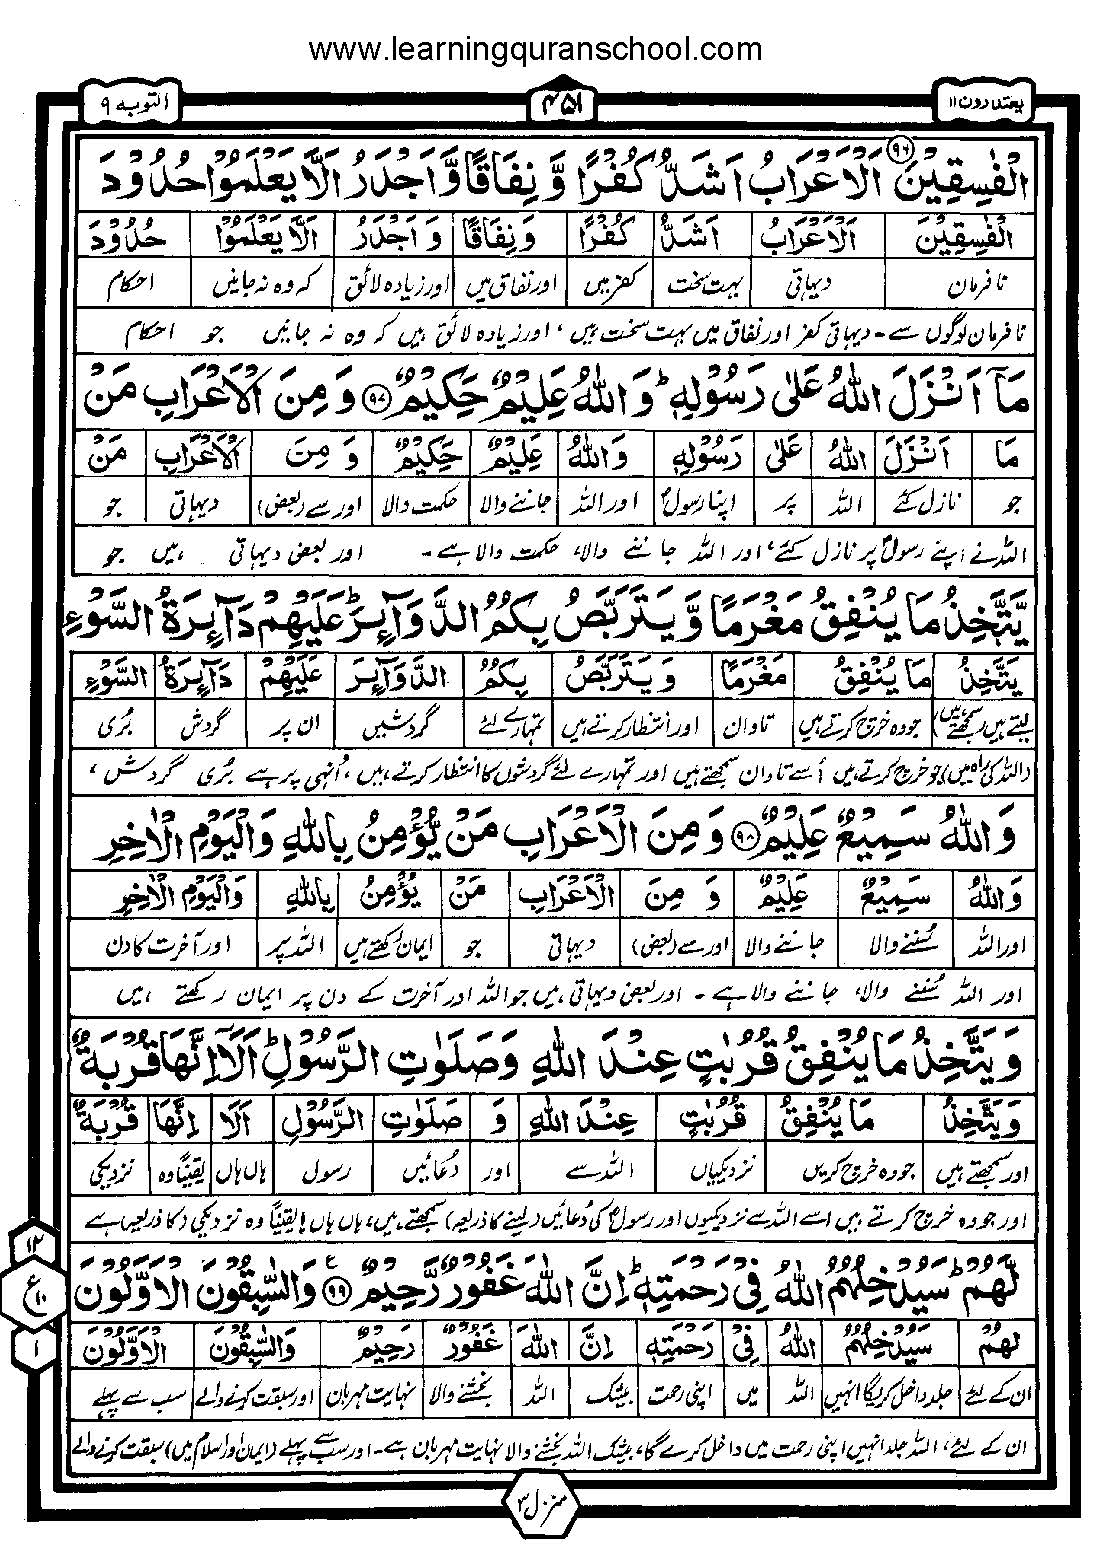 www.learningquranschool.com
یعتذرون ۱۱
۴۵۱
التوبه ۹
الْفٰسِقِيْنَ ۹۶ اَلْاَعْرَابُ اَشَدُّ كُفْرًا وَّ نِفَاقًا وَّ اَجْدَرُ اَلَّا يَعْلَمُوْا حُدُوْدَ
الْفٰسِقِيْنَ اَلْاَعْرَابُ اَشَدُّ كُفْرًا وَ نِفَاقًا وَ اَجْدَرُ اَلَّا يَعْلَمُوْا حُدُوْدَ
نافرمان دیہاتی بہت سخت کفر میں اور نفاق میں اور زیادہ لائق کہ وہ نہ جانیں احکام
نافرمان لوگوں سے - دیہاتی کفر اور نفاق میں بہت سخت ہیں ، اور زیادہ لائق ہیں کہ وہ نہ جانیں جو احکام
مَآ اَنْزَلَ اللّٰهُ عَلٰى رَسُوْلِهٖ ؕ وَ اللّٰهُ عَلِيْمٌ حَكِيْمٌ ۹۷ وَ مِنَ الْاَعْرَابِ مَنْ
مَا اَنْزَلَ اللّٰهُ عَلٰى رَسُوْلِهٖ وَاللّٰهُ عَلِيْمٌ حَكِيْمٌ وَ مِنَ الْاَعْرَابِ مَنْ
جو نازل کئے اللہ پر اپنا رسولؐ اور اللہ جاننے والا حکمت والا اور سے (بعض) دیہاتی جو
اللہ نے اپنے رسولؐ پر نازل کئے ، اور اللہ جاننے والا، حکمت والا ہے - اور بعض دیہاتی ہیں جو
يَّتَّخِذُ مَا يُنْفِقُ مَغْرَمًا وَّ يَتَرَبَّصُ بِكُمُ الدَّوَآئِرَ ؕ عَلَيْهِمْ دَآئِرَةُ السَّوْءِ
يَتَّخِذُ مَا يُنْفِقُ مَغْرَمًا وَ يَتَرَبَّصُ بِكُمُ الدَّوَآئِرَ عَلَيْهِمْ دَآئِرَةُ السَّوْءِ
لیتے ہیں (سمجھتے ہیں) جو وہ خرچ کرتے ہیں تاوان اور انتظار کرتے ہیں تمہارے لئے گردشیں ان پر گردش بُری
(اللہ کی راہ میں) جو خرچ کرتے ہیں اُسے تاوان سمجھتے ہیں اور تمہارے لئے گردشوں کا انتظار کرتے ہیں، اُنہی پر ہے بُری گردش ،
وَ اللّٰهُ سَمِيْعٌ عَلِيْمٌ ۹۸ وَ مِنَ الْاَعْرَابِ مَنْ يُّؤْمِنُ بِاللّٰهِ وَ الْيَوْمِ الْاٰخِرِ
وَاللّٰهُ سَمِيْعٌ عَلِيْمٌ وَ مِنَ الْاَعْرَابِ مَنْ يُؤْمِنُ بِاللّٰهِ وَالْيَوْمِ الْاٰخِرِ
اور اللہ سُننے والا جاننے والا اور سے (بعض) دیہاتی جو ایمان رکھتے ہیں اللہ پر اور آخرت کا دن
اور اللہ سُننے والا، جاننے والا ہے - اور بعض دیہاتی ہیں جو اللہ اور آخرت کے دن پر ایمان رکھتے ہیں
وَ يَتَّخِذُ مَا يُنْفِقُ قُرُبٰتٍ عِنْدَ اللّٰهِ وَ صَلَوٰتِ الرَّسُوْلِ ؕ اَلَآ اِنَّهَا قُرْبَةٌ
وَ يَتَّخِذُ مَا يُنْفِقُ قُرُبٰتٍ عِنْدَ اللّٰهِ وَ صَلَوٰتِ الرَّسُوْلِ اَلَا اِنَّهَا قُرْبَةٌ
اور سمجھتے ہیں جو وہ خرچ کریں نزدیکیاں اللہ سے اور دُعائیں رسول ہاں ہاں یقیناً وہ نزدیکی
اور جو وہ خرچ کرتے ہیں اسے اللہ سے نزدیکیوں اور رسولؐ کی دُعائیں (لینے کا ذریعہ) سمجھتے ہیں، ہاں ہاں! یقیناً وہ نزدیکی (کا ذریعہ) ہے
لَّهُمْ ؕ سَيُدْخِلُهُمُ اللّٰهُ فِيْ رَحْمَتِهٖ ؕ اِنَّ اللّٰهَ غَفُوْرٌ رَّحِيْمٌ ۹۹ وَ السّٰبِقُوْنَ الْاَوَّلُوْنَ
لَهُمْ سَيُدْخِلُهُمُ اللّٰهُ فِيْ رَحْمَتِهٖ اِنَّ اللّٰهَ غَفُوْرٌ رَحِيْمٌ وَالسّٰبِقُوْنَ الْاَوَّلُوْنَ
ان کے لئے جلد داخل کریگا انہیں اللہ میں اپنی رحمت بیشک اللہ بخشنے والا نہایت مہربان اور سبقت کرنے والے سب سے پہلے
ان کے لئے، اللہ جلد انہیں اپنی رحمت میں داخل کرے گا، بیشک اللہ بخشنے والا نہایت مہربان ہے - اور سب سے پہلے (ایمان اور اسلام میں) سبقت کرنے والے
۱۲
ع
۱۰
۱
منزل ۲